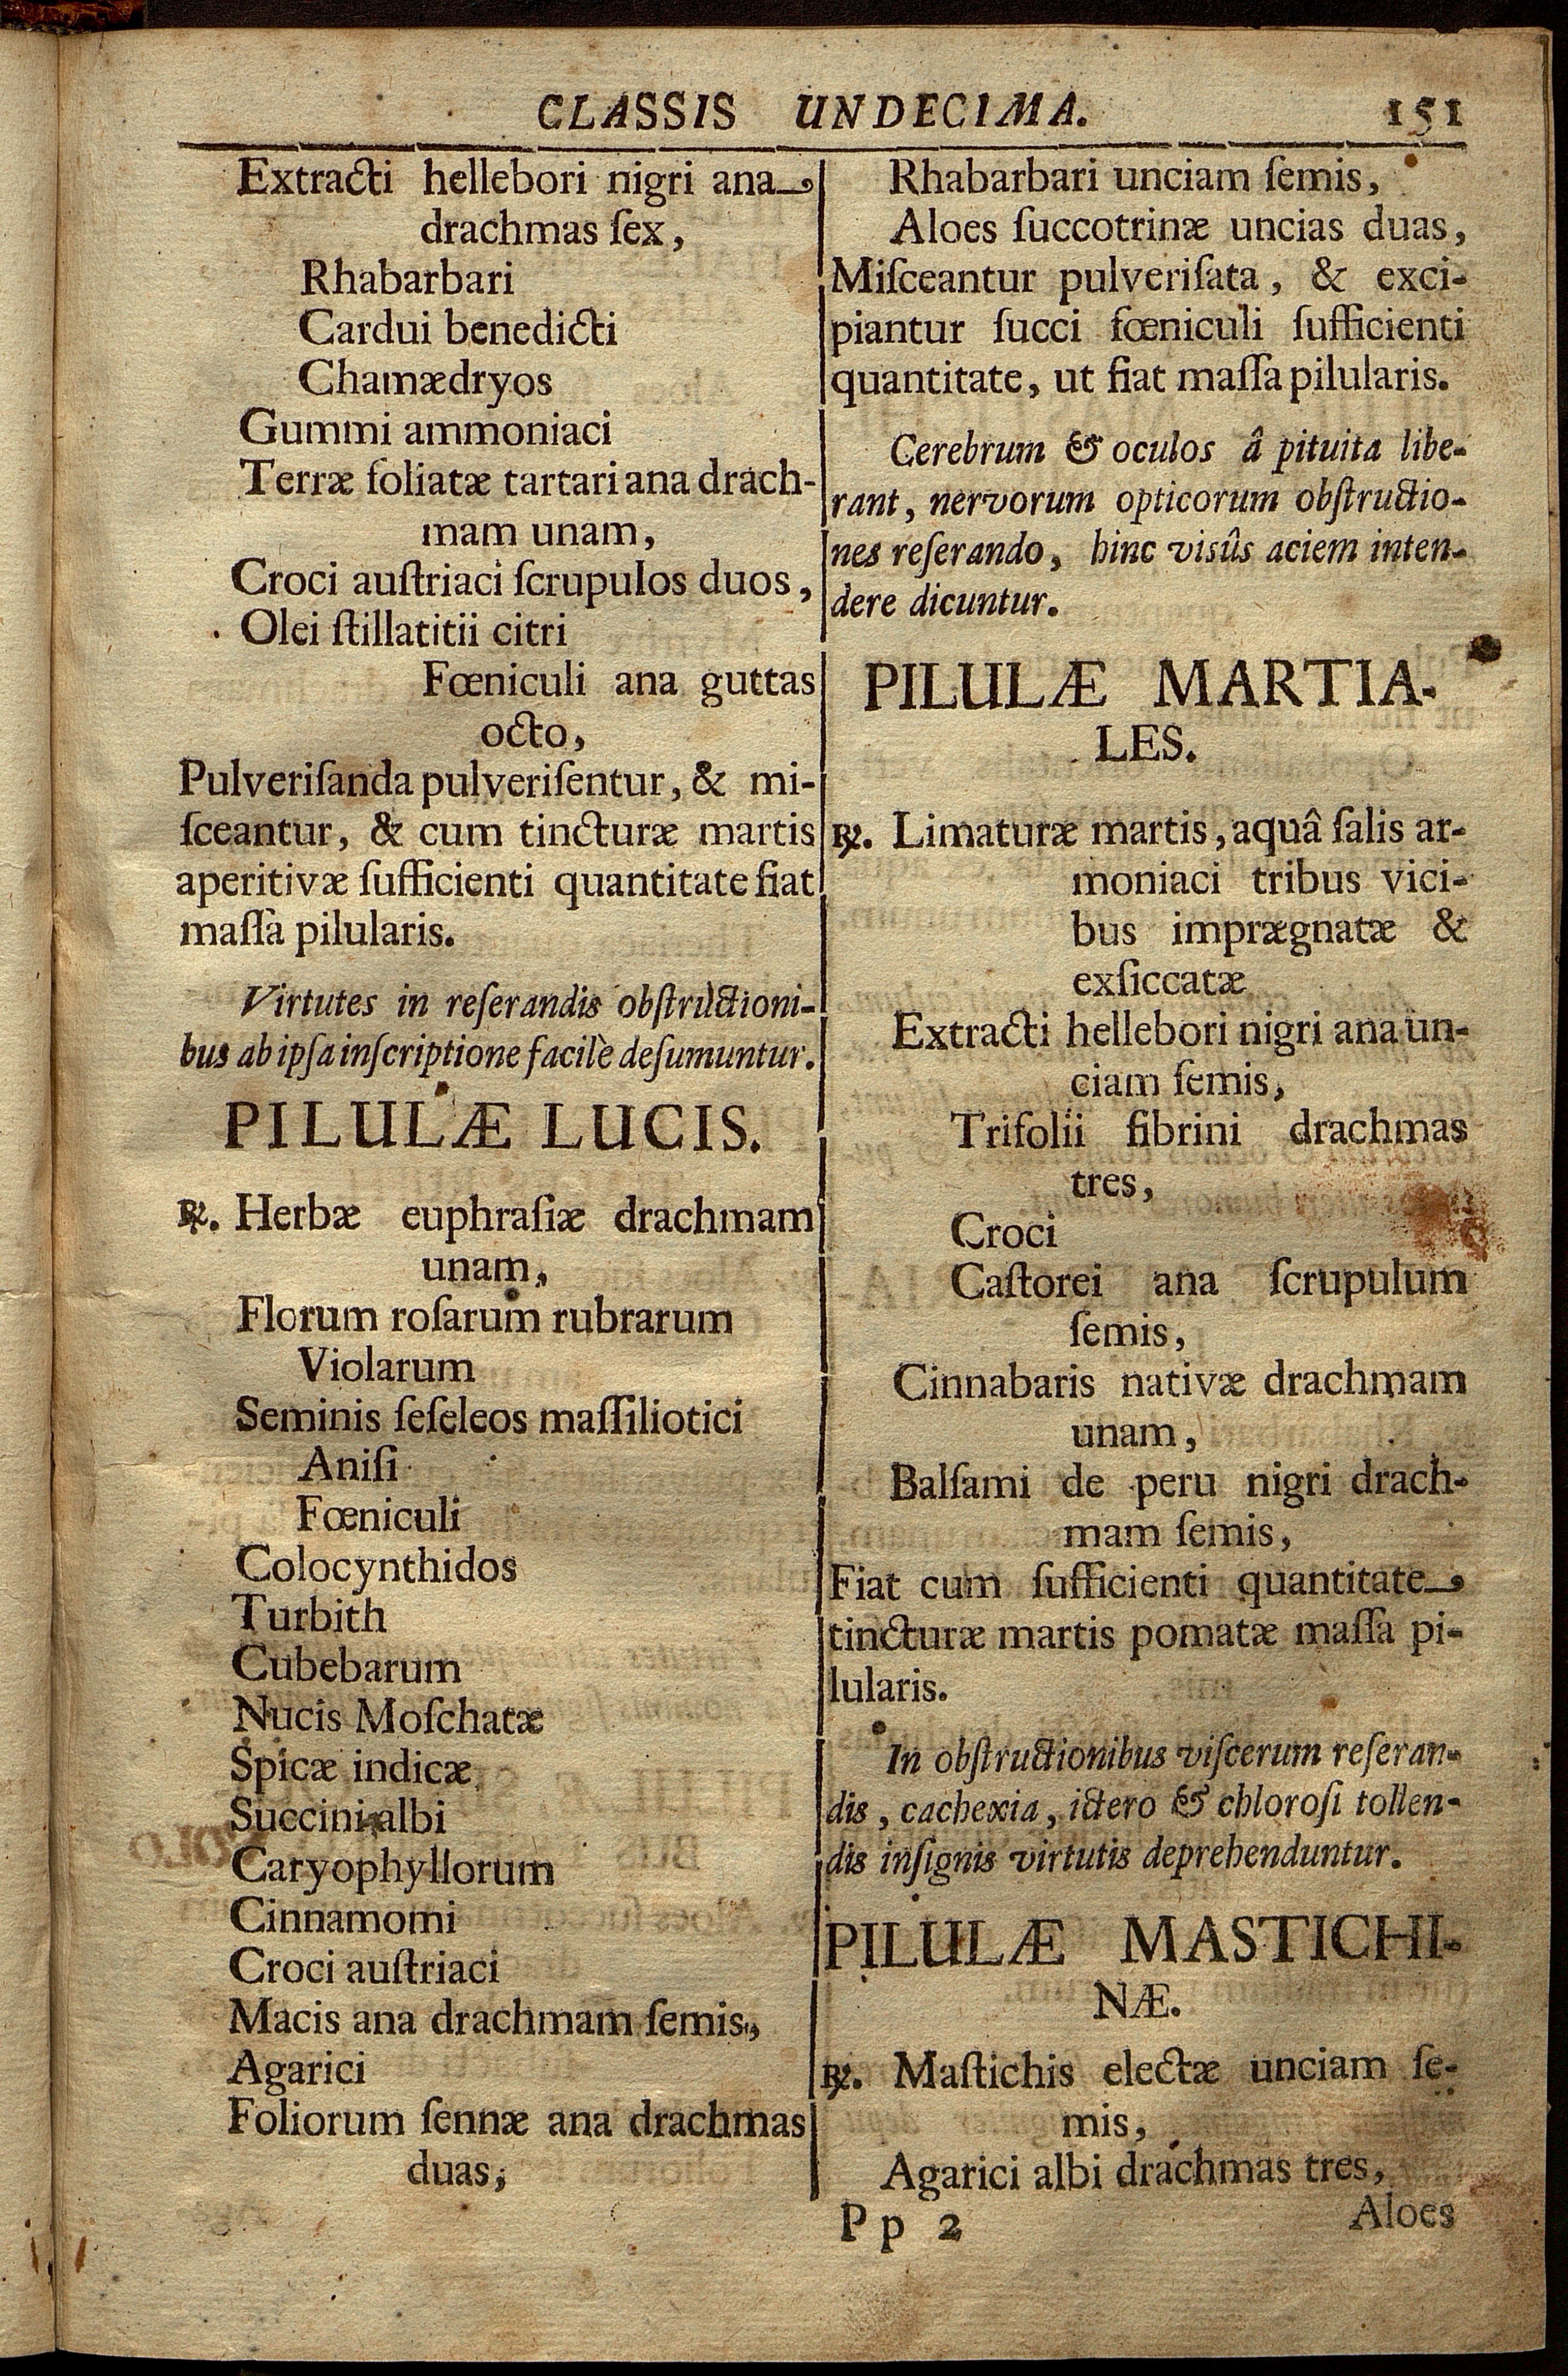 CLASSIS UNDECIMA. 151
Extracti hellebori nigri ana
drachmas ſex,
Rhabarbari
Cardui benedicti
Chamædryos
Gummi ammoniaci
Terræ foliatæ tartari ana drach-
mam unam,
Croci auſtriaci ſcrupulos duos,
Olei ſtillatitii citri
Fœniculi ana guttas
octo,
Pulveriſanda pulveriſentur, & mi-
ſceantur, & cum tincturæ martis
aperitivæ ſufficienti quantitate fiat
maſſa pilularis.
Virtutes in reſerandis obſtructioni-
bus ab ipſa inſcriptione facilè deſumuntur.
PILULÆ LUCIS.
℞. Herbæ euphraſiæ drachmam
unam,
Florum roſarum rubrarum
Violarum
Seminis ſeſeleos maſſiliotici
Aniſi
Fœniculi
Colocynthidos
Turbith
Cubebarum
Nucis Moſchatæ
Spicæ indicæ
Succini albi
Caryophyllorum
Cinnamomi
Croci auſtriaci
Macis ana drachmam ſemis,
Agarici
Foliorum ſennæ ana drachmas
duas,
Rhabarbari unciam ſemis,
Aloes ſuccotrinæ uncias duas,
Miſceantur pulveriſata, & exci-
piantur ſucci fœniculi ſufficienti
quantitate, ut fiat maſſa pilularis.
Cerebrum & oculos â pituita libe-
rant, nervorum opticorum obſtructio-
nes reſerando, hinc visûs aciem inten-
dere dicuntur.
PILULÆ MARTIA-
LES.
℞. Limaturæ martis, aquâ ſalis ar-
moniaci tribus vici-
bus imprægnatæ &
exſiccatæ
Extracti hellebori nigri ana un-
ciam ſemis,
Trifolii fibrini drachmas
tres,
Croci
Caſtorei ana ſcrupulum
ſemis,
Cinnabaris nativæ drachmam
unam,
Balſami de peru nigri drach-
mam ſemis,
Fiat cum ſufficienti quantitate
tincturæ martis pomatæ maſſa pi-
lularis.
In obſtructionibus viſcerum reſeran-
dis, cachexia, ictero & chloroſi tollen-
dis inſignis virtutis deprehenduntur.
PILULÆ MASTICHI-
NÆ.
℞. Maſtichis electæ unciam ſe-
mis,
Agarici albi drachmas tres,
Pp 2 Aloes